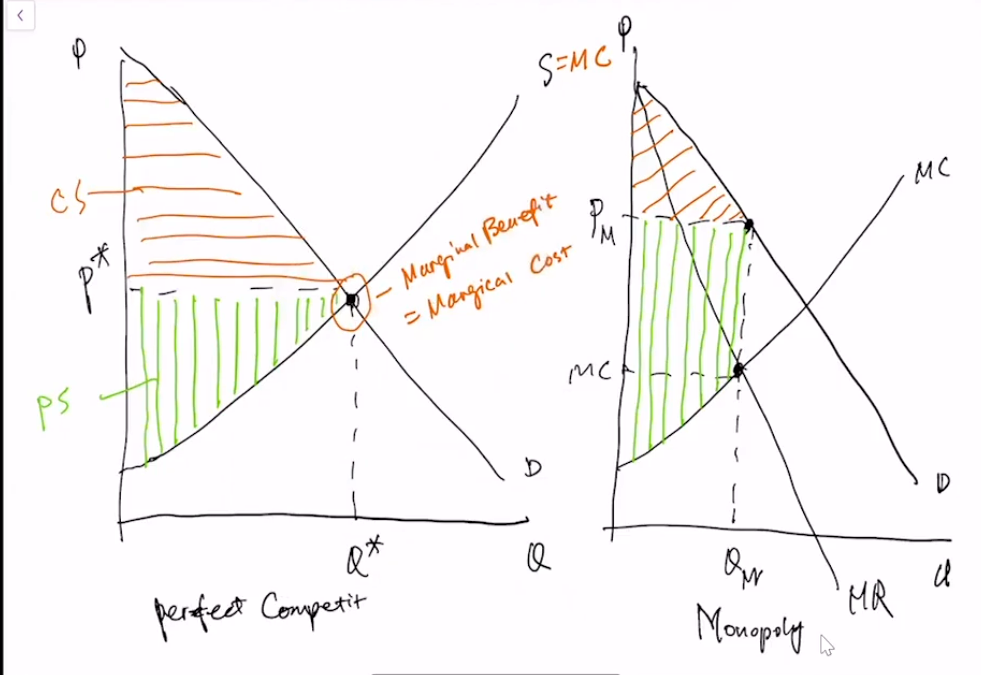 P
S=MC
CS
P*
Marginal Benefit
= Margical Cost
PS
D
Q*
Q
perfect Competit
P
MC
PM
MC
D
QM
Q
MR
Monopoly